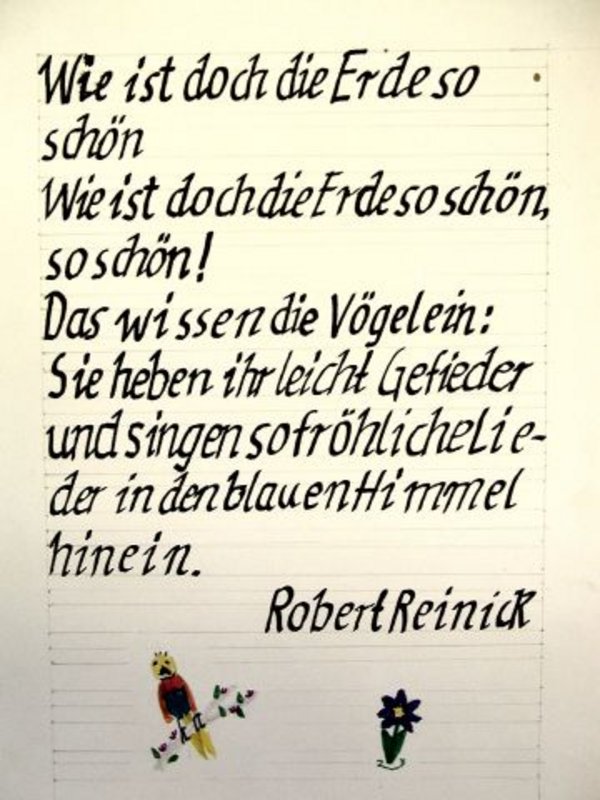 Wie ist doch die Erde so
schön
Wie ist doch die Erde so schön,
so schön!
Das wissen die Vögelein:
Sie heben ihr leicht Gefieder
und singen so fröhliche Lie-
der in den blauen Himmel
hinein.
Robert Reinick